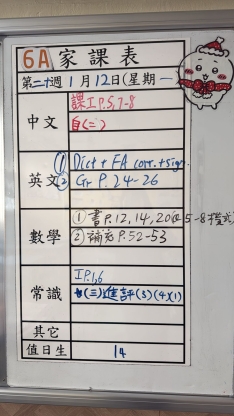 6A 家課表
第二十週 1月12日(星期一
中文
課工P.5,7-8
自(二)
英文
① Dict + FA corr. + sign.
② Gr P.24-26
數學
① 書P.12,14,20
② 補充P.52-53
常識
工P.1,6
(三)進評(3)(4)(1)
其它
值日生 14